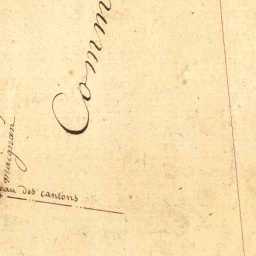 Comm
maignan
eau des cantons